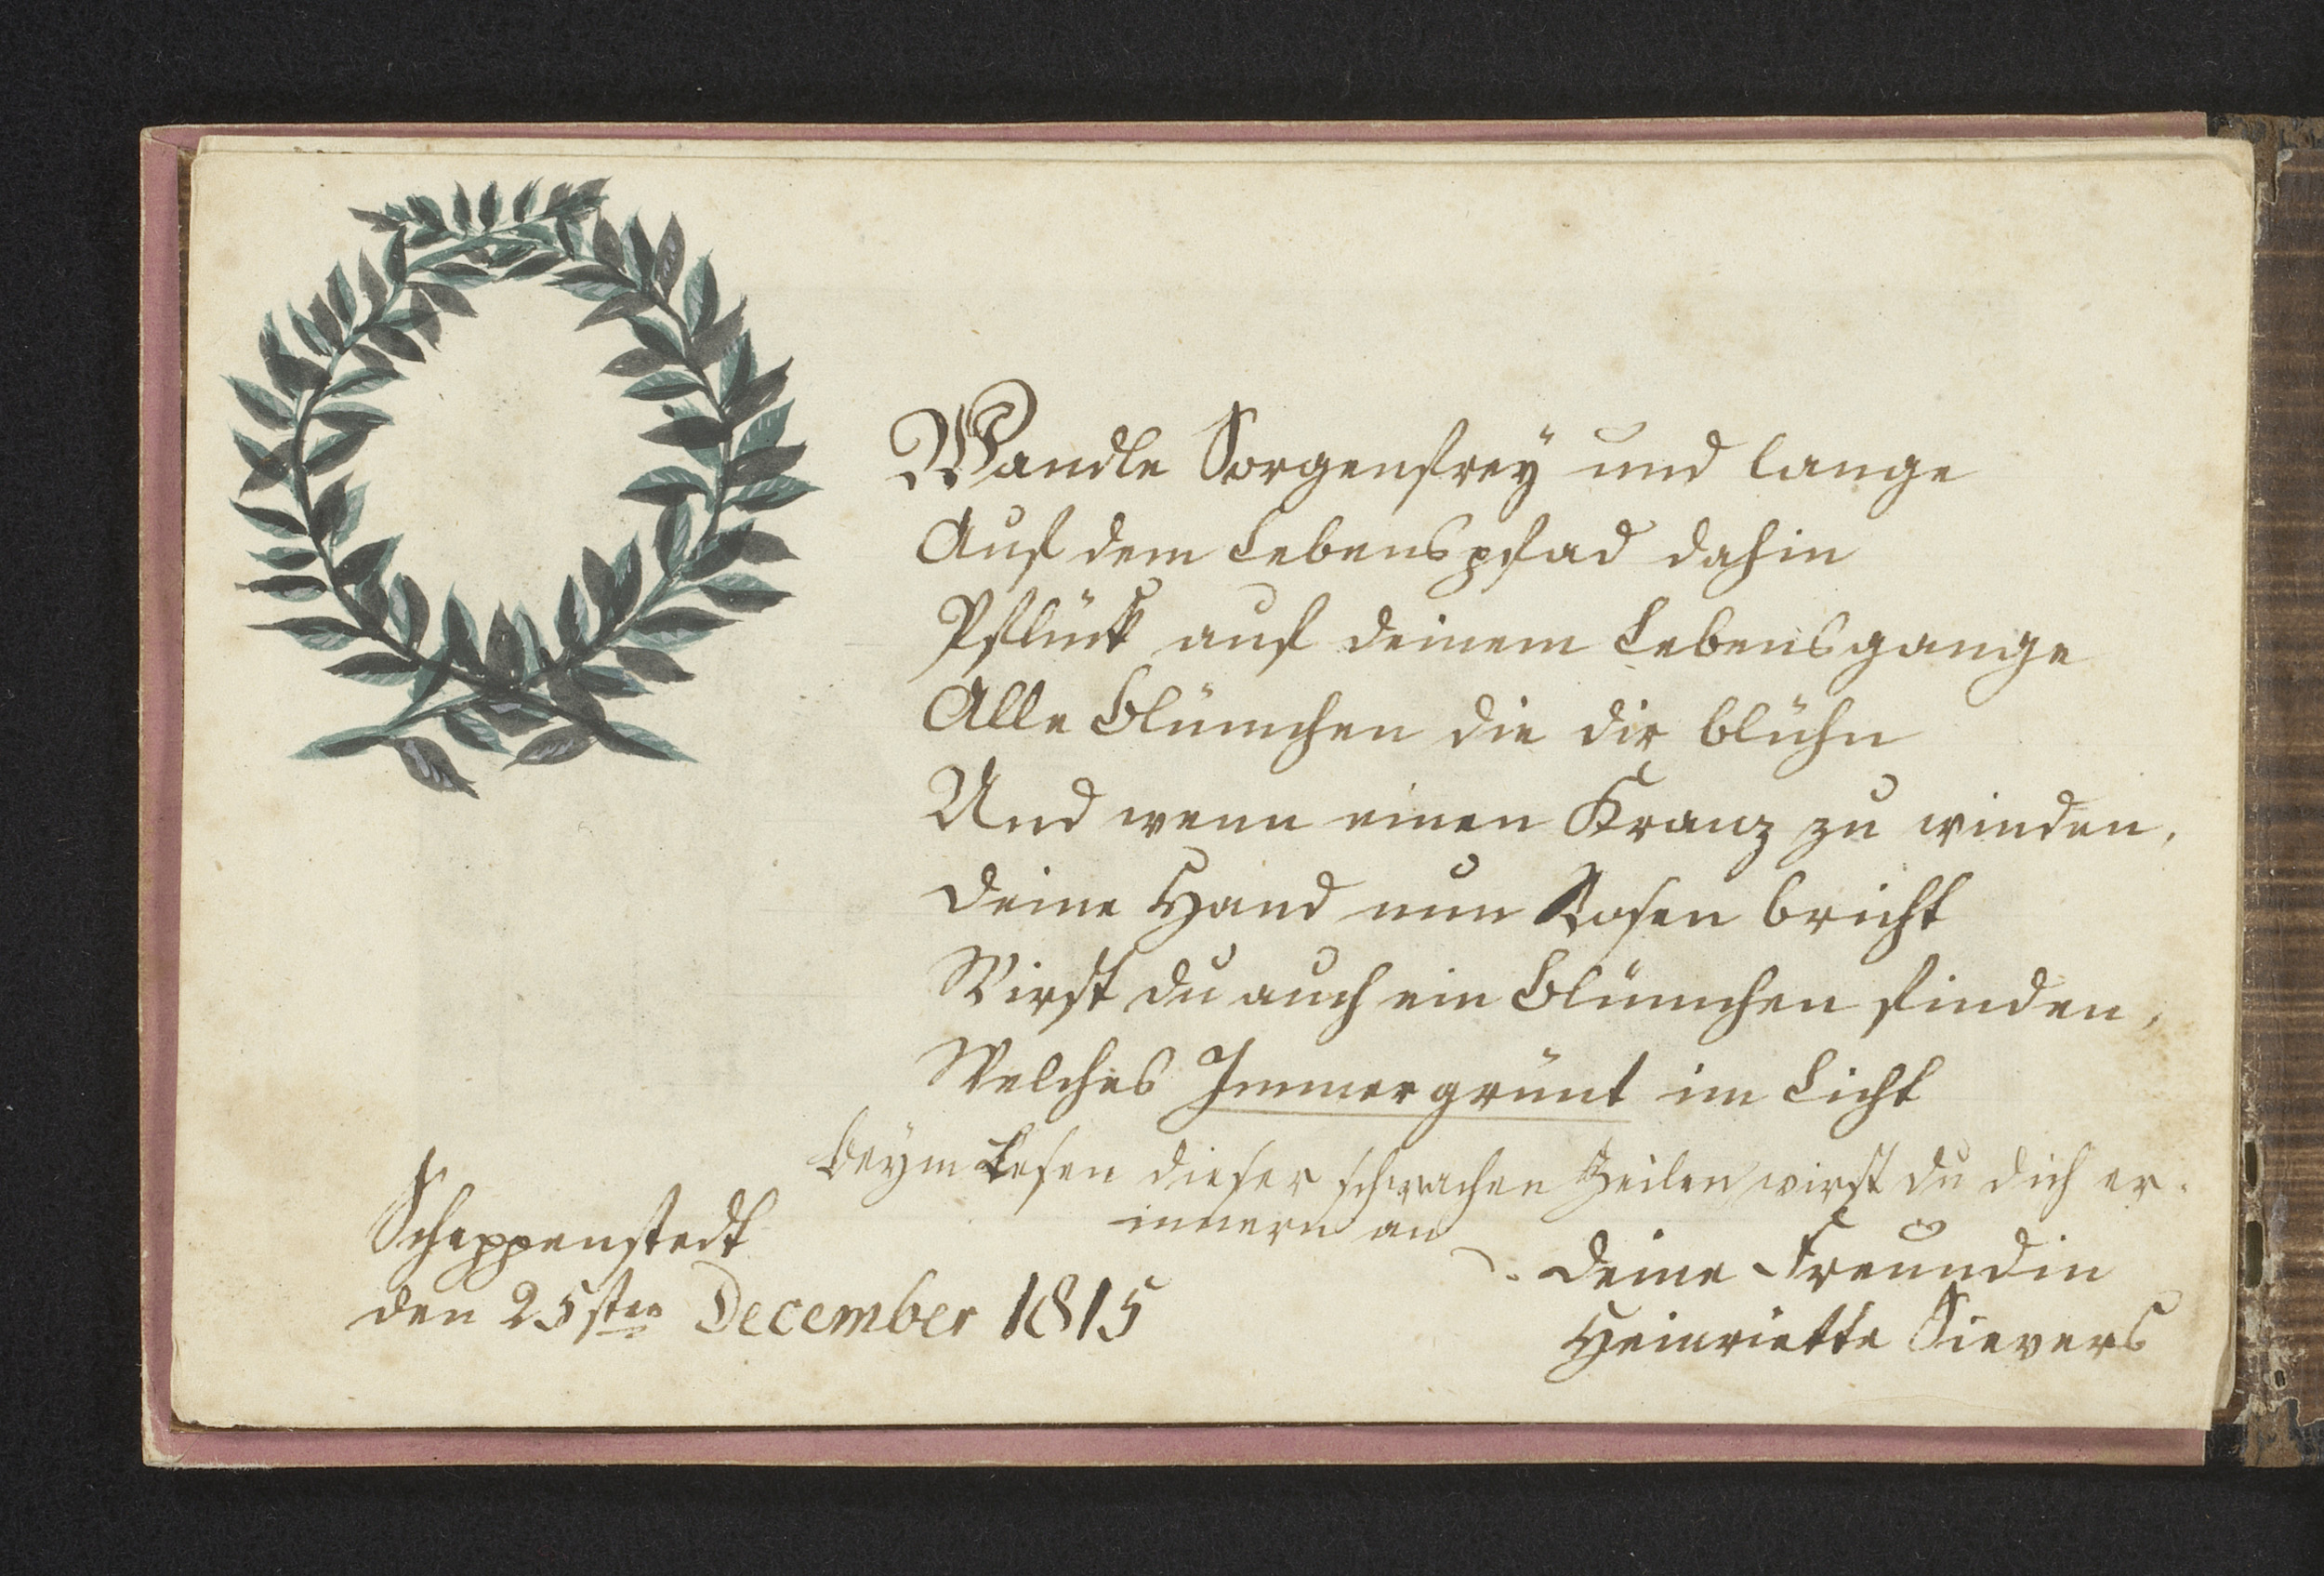 Wandle Sorgenfreÿ und lange
Auf dem Lebenspfad dahin
Pflück auf deinem Lebensgange
Alle Blümchen die dir blühn
Und wenn einen Kranz zu winden,
Deine Hand nun Rosen bricht
Wirst du auch ein Blümchen finden,
Welches Immergrünt im Licht
Beÿm Lesen dieser schwachen Zeilen wirst du dich er-
innern an
Deine Freundin
Heinriette Sievers
Scheppenstedt
den 25sten December 1815